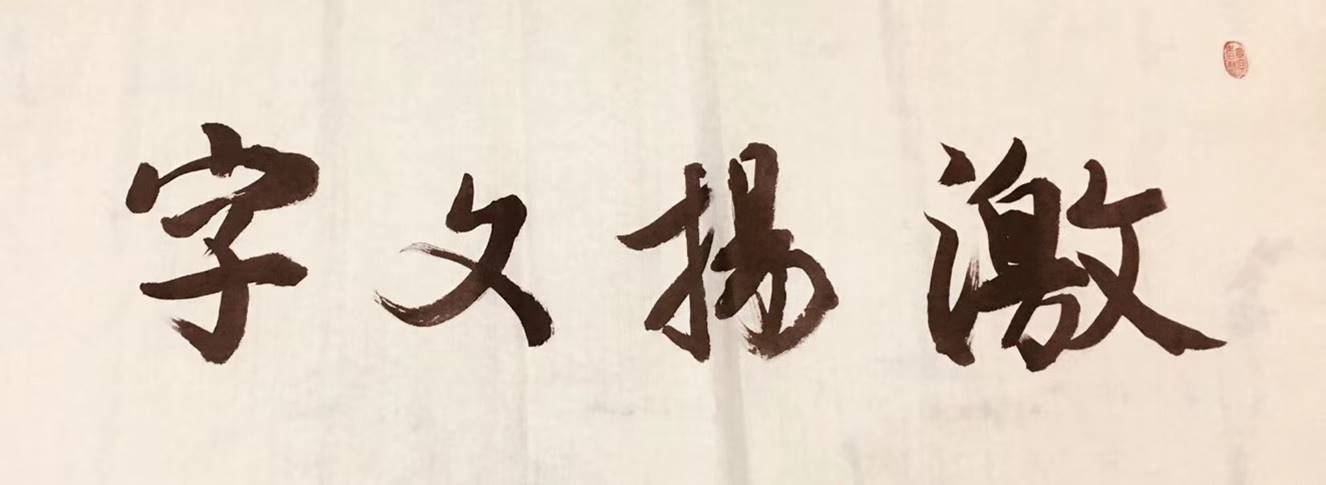 激揚文字